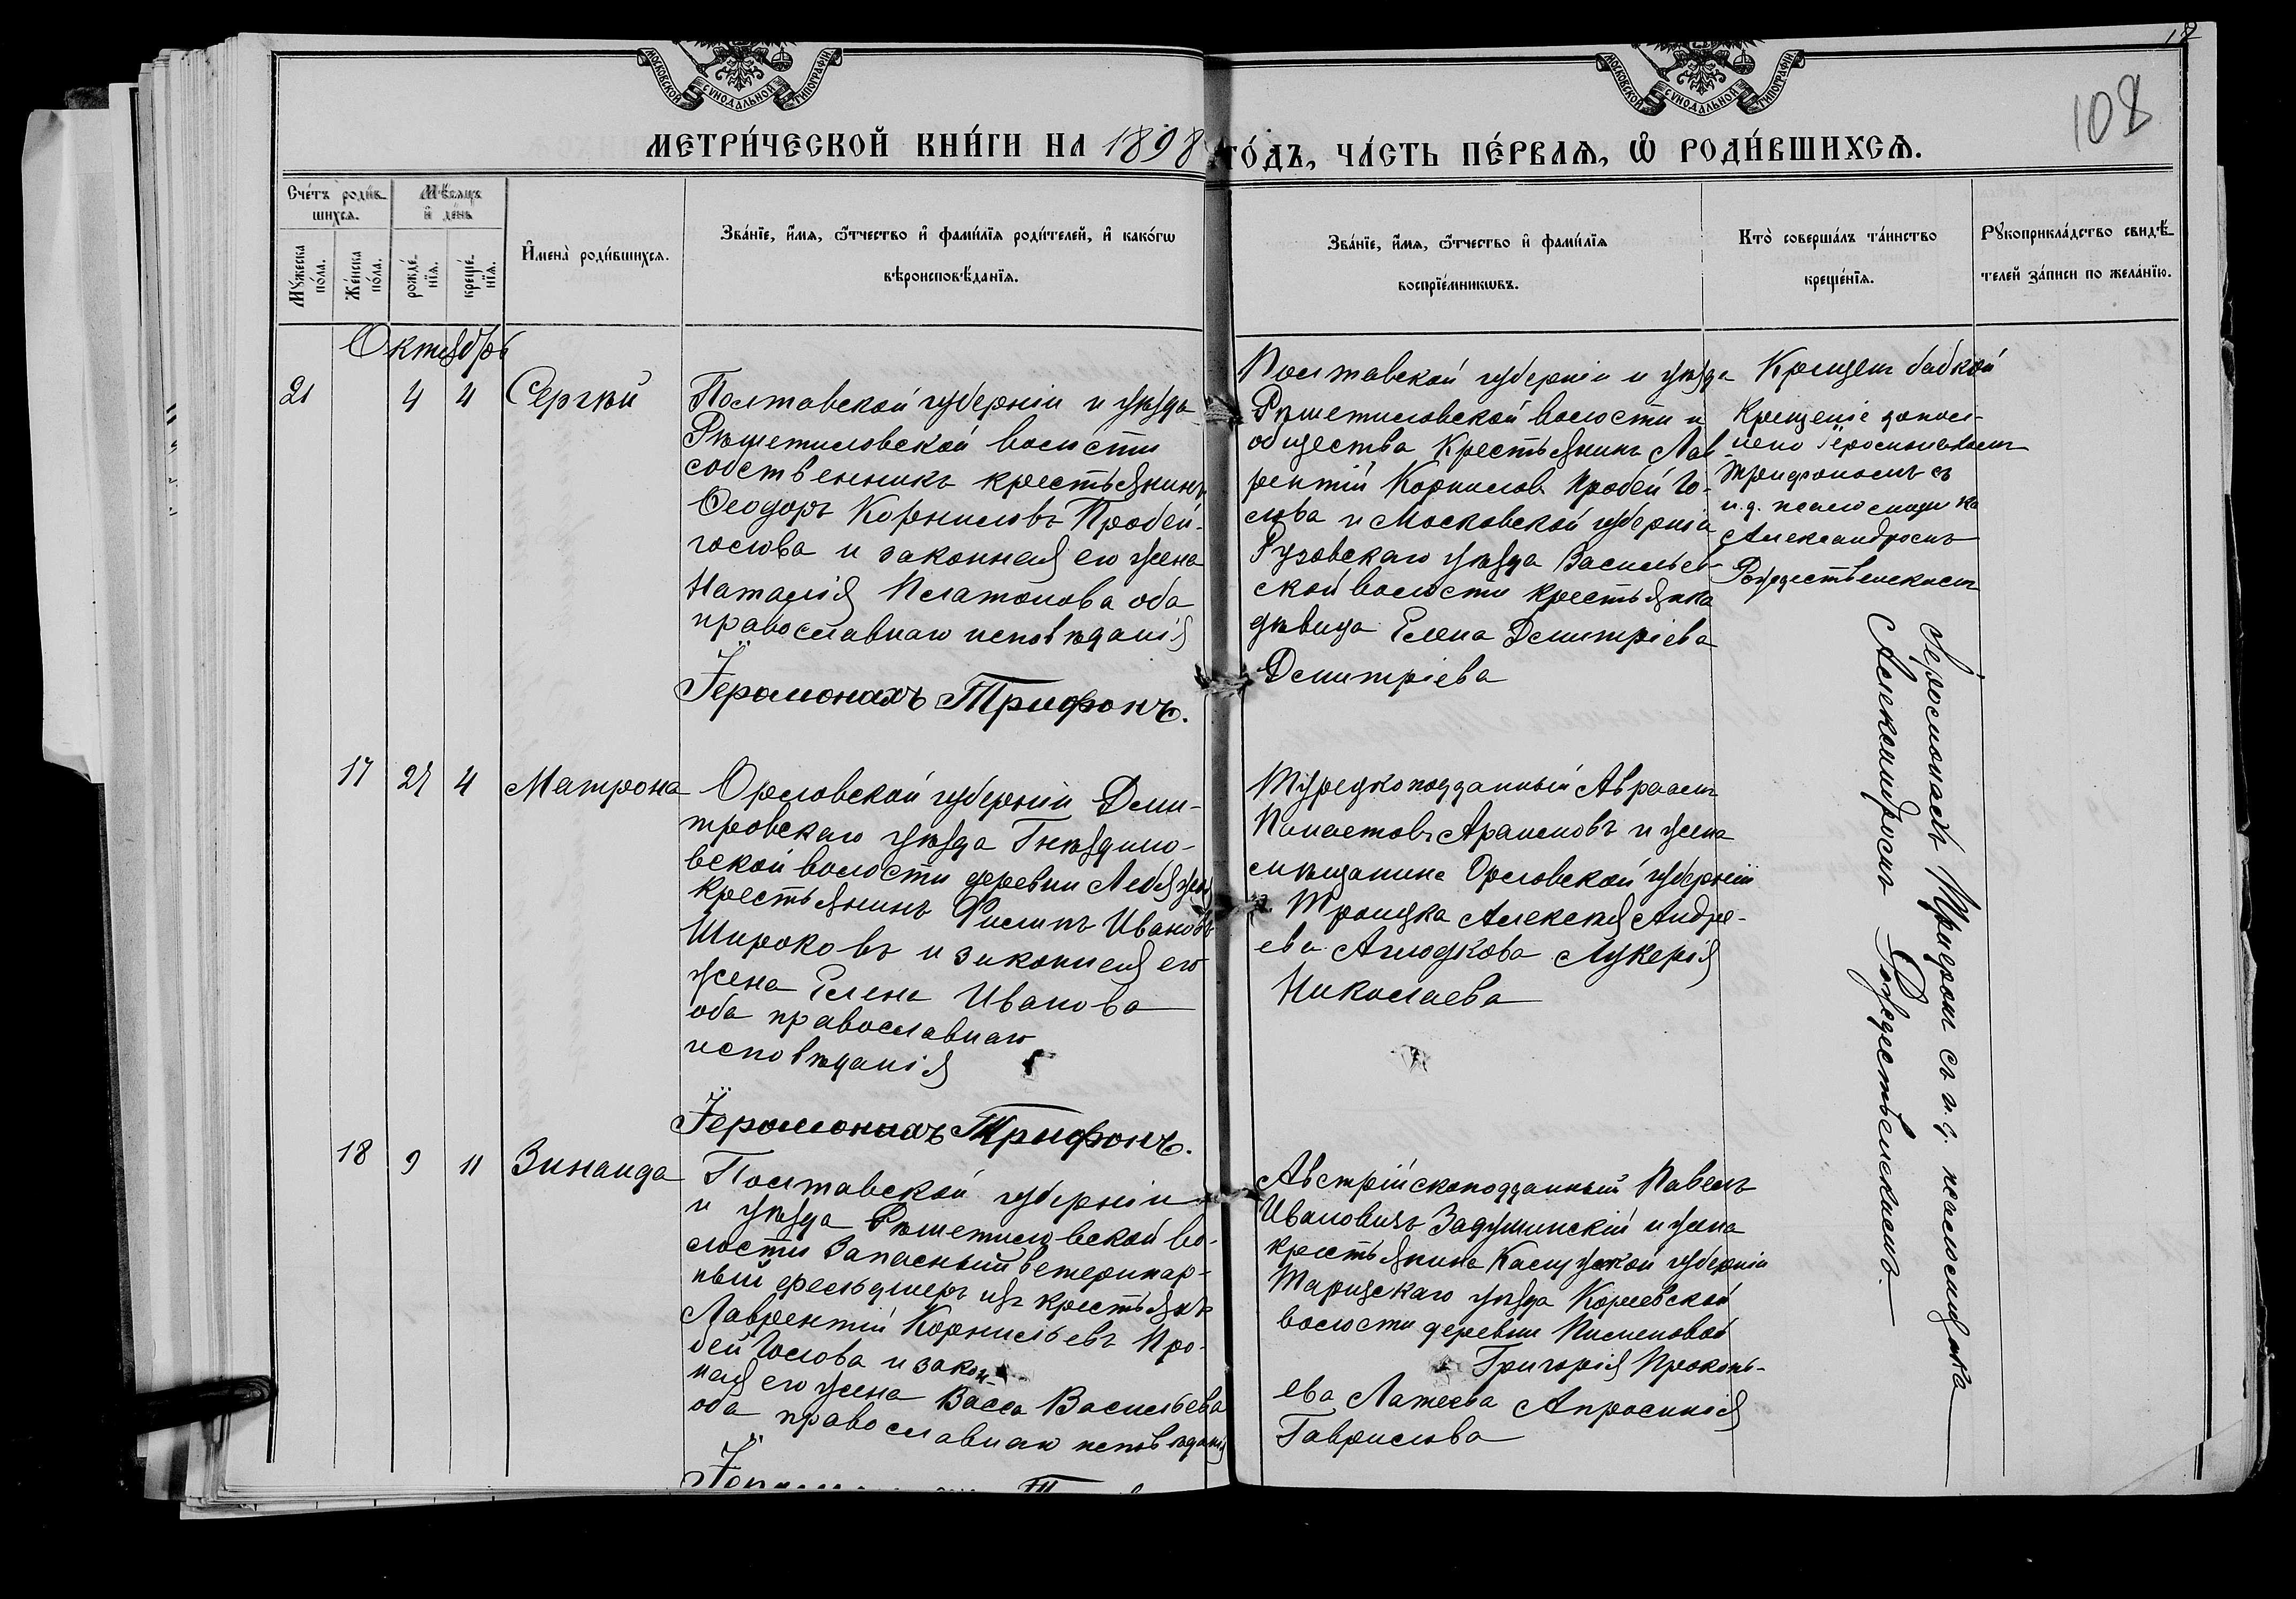 12
108
МОСКОВСКОЙ СѴНОДАЛЬНОЙ ТИПОГРАФІИ
МОСКОВСКОЙ СѴНОДАЛЬНОЙ ТИПОГРАФІИ
МЕТРИ́ЧЕСКОЙ КНИ́ГИ НА 1898 ГО́ДЪ, ЧА́СТЬ ПЕ́РВАѦ, Ѡ҆ РОДИ́ВШИХСѦ.
Сче́тъ роди́в-
шихсѧ.
Мꙋ́жеска
по́ла.
Же́нска
по́ла.
Мѣ́сѧцъ
и҆ де́нь
рожде́-
нїѧ.
креще́-
нїѧ.
И҆мена̀ роди́вшихсѧ.
Зва́нїе, и҆́мѧ, ѻ҆́тчество и҆ фами́лїѧ роди́телей, и҆ како́гѡ
вѣроисповѣ́данїѧ.
Зва́нїе, и҆́мѧ, ѻ҆́тчество и҆ фами́лїѧ
воспрїе́мникѡвъ.
Кто̀ соверша́лъ та́инство
креще́нїѧ.
Рꙋкоприкла́дство свидѣ́-
телей за́писи по жела́нїю.
Октябрь
21 4 4 Сергѣй
Полтавской губерніи и уѣзда
Рѣшетиловской волости
собственникъ крестьянинъ
Ѳеодоръ Корниловъ Пробей-
голова и законная его жена
Наталія Платонова оба
православнаго исповѣданія
Іеромонахъ Трифонъ.
Полтавской губерніи и уѣзда
Рѣшетиловской волости и
общества крестьянинъ Лав-
рентій Корнилов Пробей Го-
лова и Московской губерніи
Рузовскаго уѣзда Васильев-
ской волости крестьянка
дѣвица Елена Дмитріева
Дмитріева
Крещен бабкой
Крещеніе допол-
нено Іеромонахомъ
Трифономъ съ
и.д. псаломщика
Александромъ
Рождественскимъ
17 27 4 Матрона
Орловской губерніи Дми-
тровскаго уѣзда Гнѣздило-
вской волости деревни
крестьянинъ Филипъ Ивановъ
Широковъ и законная его
жена Елена Иванова
оба православнаго
исповѣданія
Іеромонахъ Трифонъ.
Турецкоподданный Авраамъ
и жена
мѣщанина Орловской губерніи
Троицка Алексѣя Андре-
ева Лукерія
Николаева
18 9 11 Зинаида
Полтавской губерніи
и уѣзда Рѣшетиловской во-
лости Запасный ветеринар-
ный фельдшеръ изъ крестьянъ
Лаврентій Корнильевъ Про-
бей Голова и закон-
ная его жена Васса Васильева
оба православнаго исповѣданія
Австрійскоподданный Павелъ
Ивановичъ Задушинскій и жена
крестьянина Калужской губерніи
Тарусскаго уѣзда
волости деревни
Григорія Прокопь-
ева Апросинія
Гаврилова
Іеромонахъ Трифон съ и.д. псаломщика
Александромъ Рождественскимъ